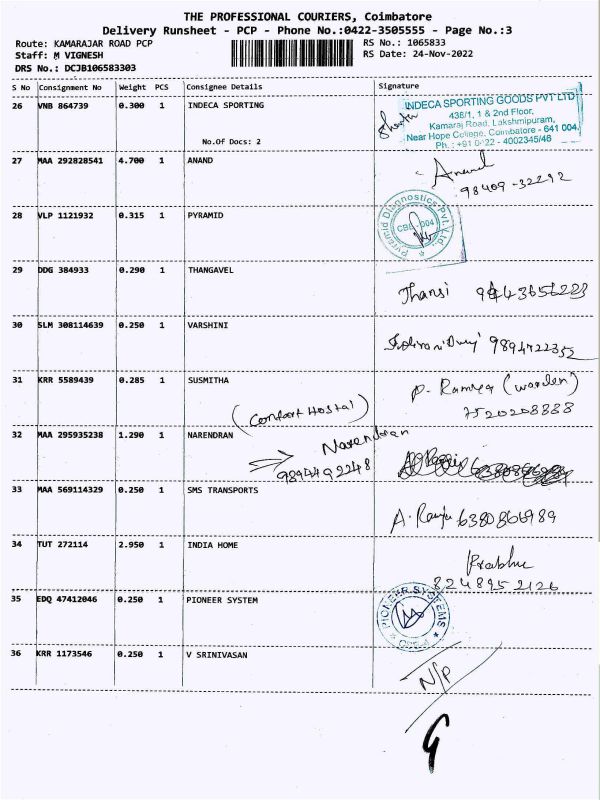 THE PROFESSIONAL COURIERS, Coimbatore
Delivery Runsheet - PCP - Phone No.:0422-3505555 - Page No.:3
Route: KAMARAJAR ROAD PCP
RS No.: 1065833
Staff: M VIGNESH
RS Date: 24-Nov-2022
DRS No.: DCJB106583303
S No Consignment No Weight PCS Consignee Details Signature
26 VNB 864739 0.300 1 INDECA SPORTING
No.Of Docs: 2
INDECA SPORTING GOODS PVT LTD
438/1, 1 & 2nd Floor,
Kamaraj Road, Lakshmipuram,
Near Hope College, Coimbatore - 641 004.
Ph.: +91 0422 - 4002345/46
27 MAA 292828541 4.700 1 ANAND
Anand
98409-32292
28 VLP 1121932 0.315 1 PYRAMID
Pyramid Diagnostics Pvt. Ltd.
CBE - 004
29 DDG 384933 0.290 1 THANGAVEL
Thansi 9443656223
30 SLM 308114639 0.250 1 VARSHINI
9894722352
31 KRR 5589439 0.285 1 SUSMITHA
P. Ramya (warden)
7520208888
(Comfort Hostal)
32 MAA 295935238 1.290 1 NARENDRAN
Narendran
9894492248
33 MAA 569114329 0.250 1 SMS TRANSPORTS
A. Ramya 6380866989
34 TUT 272114 2.950 1 INDIA HOME
Prabhu
8248952126
35 EDQ 47412046 0.250 1 PIONEER SYSTEM
PIONEER SYSTEMS
36 KRR 1173546 0.250 1 V SRINIVASAN
N/P